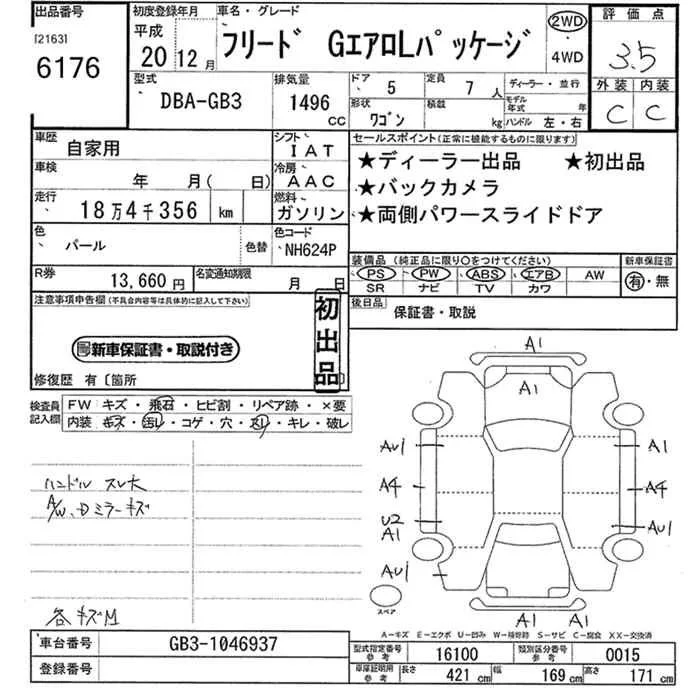 出品番号
[2163]
6176
初度登録年月
平成
20年12月
車名・グレード
フリード GエアロLパッケージ
2WD
・
4WD
評価点
3.5
外装 内装
C C
型式
DBA-GB3
排気量
1496
CC
ドア 5
定員 7人
ディーラー・並行
形状 ワゴン
積載 kg
モデル年式 年
ハンドル 左・右
車歴 自家用
シフト IAT
車検 年 月( 日)
冷房 AAC
走行 18万4千356 km
燃料 ガソリン
色 パール
色替
色コード NH624P
R券 13,660円
名変通知期限 月 日
セールスポイント(正常に機能するものに限ります)
★ディーラー出品 ★初出品
★バックカメラ
★両側パワースライドドア
装備品 (純正品に限り○をつけてください)
新車保証書
PS PW ABS エアB AW
SR ナビ TV カワ
有・無
後日品
保証書・取説
注意事項申告欄(不具合内容等は具体的に記入して下さい)
初出品
新車保証書・取説付き
修復歴 有〔箇所
検査員記入欄
FW キズ・飛石・ヒビ割・リペア跡・×要
内装 キズ・汚レ・コゲ・穴・スレ・キレ・破レ
ハンドル スレ大
A/W、Dミラーキズ
各キズM
A1
A1
AU1
A1
A4
A4
U2
A1
AU1
AU1
A1
A1
スペア
A-キズ E-エクボ U-凹み W-補修跡 S-サビ C-腐食 XX-交換済
車台番号 GB3-1046937
登録番号
型式指定番号 参考 16100
類別区分番号 参考 0015
車庫証明用 参考
長さ 421 cm
幅 169 cm
高さ 171 cm